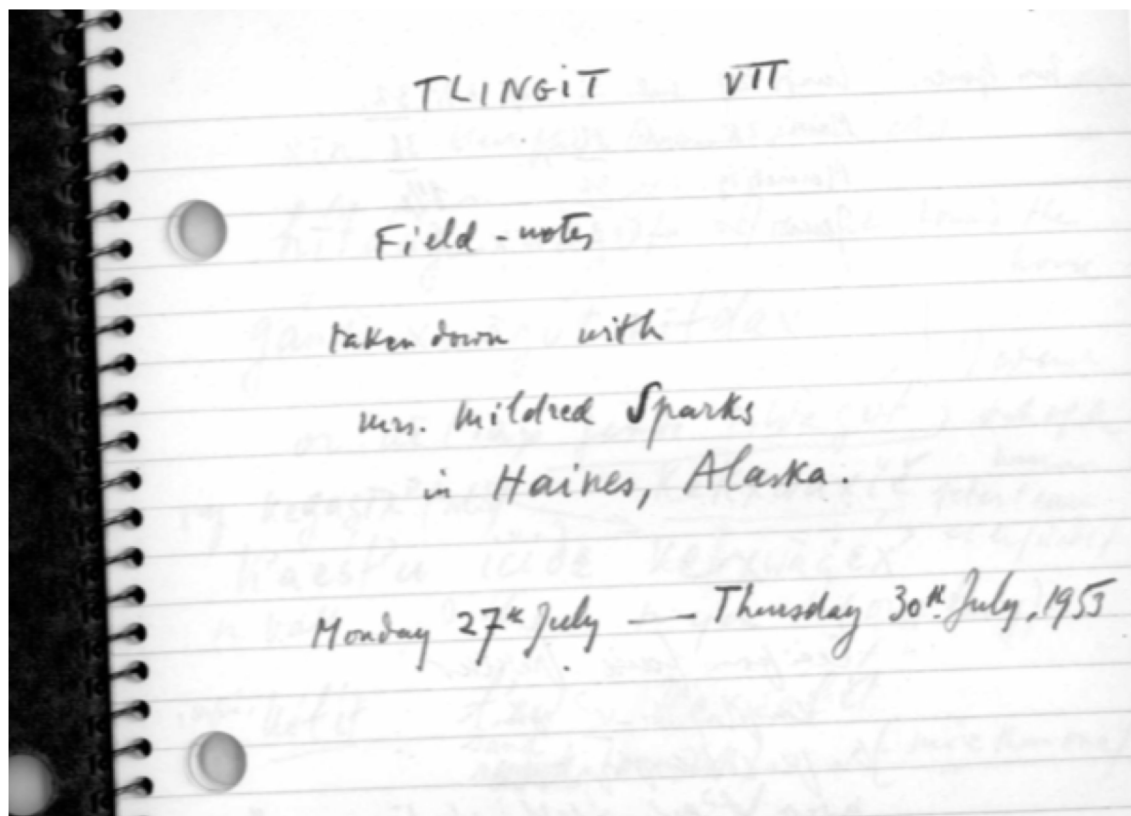 TLINGIT VII
Field-notes
taken down with
mrs. Mildred Sparks
in Haines, Alaska.
Monday 27th July — Thursday 30th July, 1953